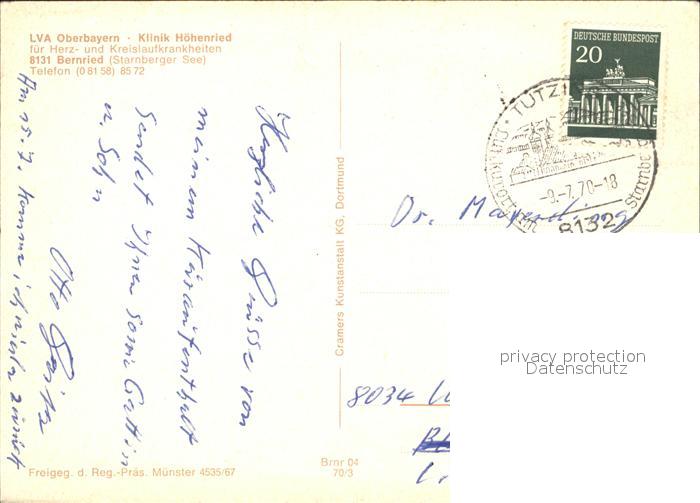 LVA Oberbayern · Klinik Höhenried
für Herz- und Kreislaufkrankheiten
8131 Bernried (Starnberger See)
Telefon (0 81 58) 85 72
Herzliche Grüsse von
meinem Kuraufenthalt
sendet Ihnen sowie Gattin
u. Sohn
Otto
Am 15.7. komme ich wieder zurück
Cramers Kunstanstalt KG, Dortmund
DEUTSCHE BUNDESPOST
20
TUTZI
-9.-7.70-18
8132
Starnbe
Dr.
privacy protection
Datenschutz
8034
Freigeg. d. Reg.-Präs. Münster 4535/67
Brnr 04
70/3